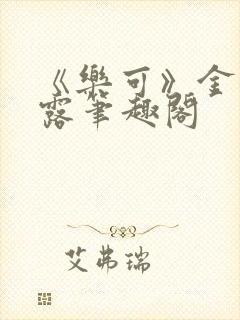 《樂可》金
露筆趣閣
艾弗瑞